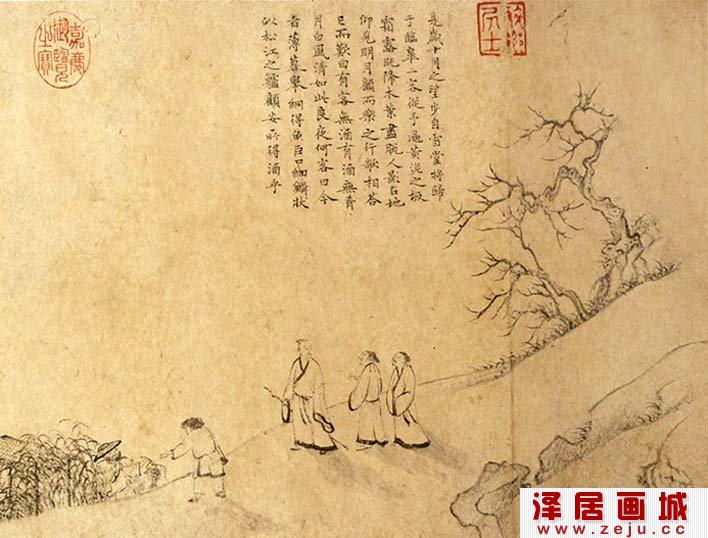 是歲十月之望步自雪堂將歸
于臨皋二客從予過黃泥之坂
霜露既降木葉盡脫人影在地
仰見明月顧而樂之行歌相答
已而歎曰有客無酒有酒無肴
月白風清如此良夜何客曰今
者薄暮舉網得魚巨口細鱗狀
似松江之鱸顧安所得酒乎
嘉慶御覽之寶
泽居画城
www.zeju.cc